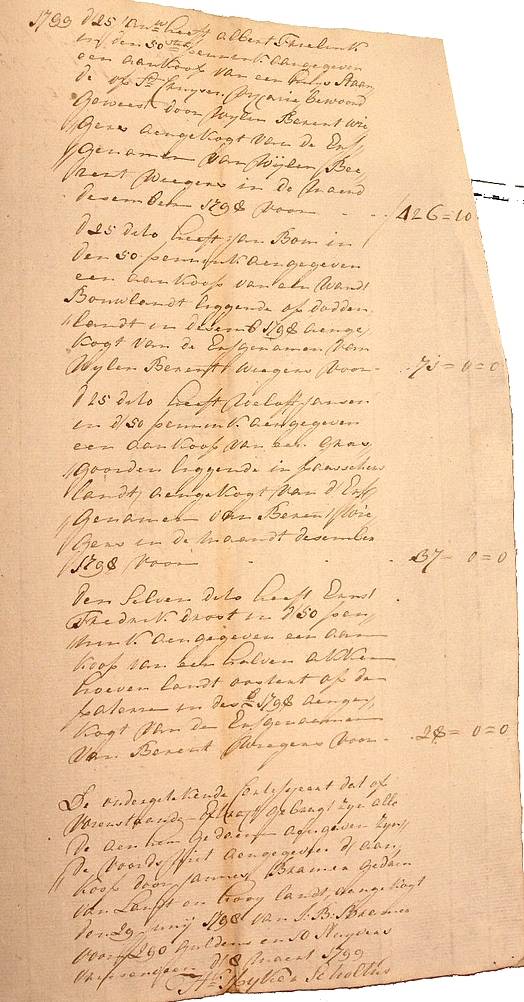 1799 d 25 Jan heeft Albert Frielink
in den 50 sten pennink aangegeven
een aankoop van een huis staan
de op bewoond
geweest door Wylen Berent Wie
gers aengekogt van de Erf
genamen van Wylen Be
rent Weegers in de Maend
desember 1798 voor - - 426=10
d 25 dito heeft Jan Bom in
den 50 pennink aengegeven
een aankoop van een Wandt
Bouwlandt liggende op dodden
landt in desemb 1798 aenge
kogt van de Erfgenamen van
Wylen Berent Wiegers voor - 75=0=0
d 25 dito heeft Roeloff Jansen
in d 50 pennink aengegeven
een aankoop van een Gras
goorden liggende in
landt, aengekogt van d' Erf
genamen van Berent Wie
gers in de maandt desember
1798 voor - - 37=0=0
den selven dito heeft Ernst
Fredrik Drost in d 50 pen
nink aengegeven een aan
koop van een halven akker
hoeven landt oostent op de
in des 1798 aenge
kogt van de Erfgenaemen
van Berent Wiegers voor - 28=0=0
De ondergetekende certifyceert dat op
vorenstaende gebragt zyn alle
de aen hem gedaen aengegeven zyn
de voords niet aangegeven d' aan
koop door Jannes Bramer gedaen
van Landt en hooy landt, aengekogt
den 29 Junij 1798 van J:B: Bramer
voor 290 guldens en 10 stuyvers
d 8 Maert 1799
Scholtus